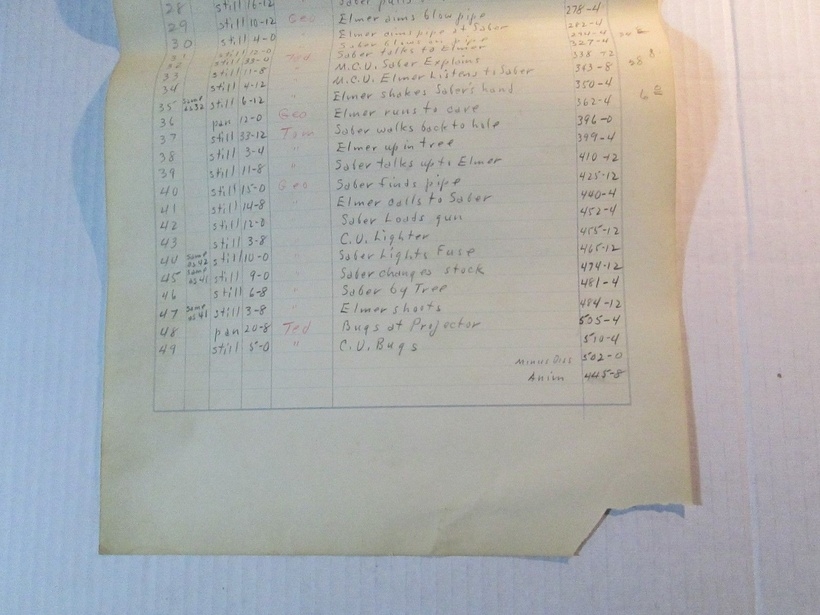 28 still 16-12 Saber pulls 278-4
29 still 10-12 Geo Elmer aims blow pipe
30 still 4-0 " Elmer aims pipe at Saber
Saber blows in pipe 327-4
Ted Saber talks to Elmer 338-12
" M.C.U. Saber Explains 343-8
33 still 11-8 M.C.U. Elmer Listens to Saber 350-4
34 still 4-12 " Elmer shakes Saber's hand 362-4
35 Same as 32 still 6-12
36 pan 12-0 Geo Elmer runs to cave 396-0
37 still 33-12 Tom Saber walks back to hole 399-4
38 still 3-4 " Elmer up in tree 410-12
39 still 11-8 Saber talks up to Elmer 425-12
40 still 15-0 Geo Saber finds pipe 440-4
41 still 14-8 " Elmer calls to Saber 452-4
42 still 12-0 Saber Loads gun 455-12
43 still 3-8 " C.U. Lighter 465-12
44 Same as 42 still 10-0 " Saber Lights Fuse 474-12
45 Same as 41 still 9-0 " Saber changes stock 481-4
46 still 6-8 " Saber by Tree 484-12
47 Same as 41 still 3-8 " Elmer shoots 505-4
48 pan 20-8 Ted Bugs at Projector 510-4
49 still 5-0 " C.U. Bugs
Minus Diss 502-0
Anim 445-8